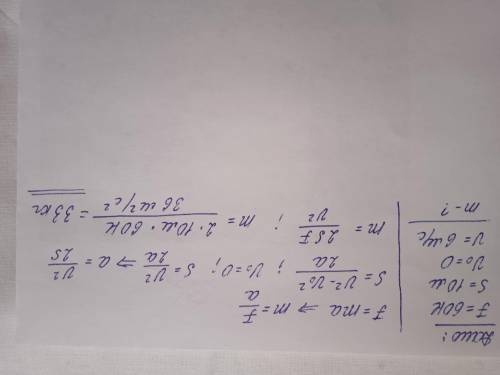 Дано:
F = 60H
S = 10м
V₀ = 0
V = 6 м/с
m - ?
F = ma ⇒ m = F/a
S = (V² - V₀²)/2a ; V₀ = 0; S = V²/2a ⇒ a = V²/2S
m = 2SF/V² ; m = (2 · 10м · 60H)/(36 м²/с²) = 33 кг